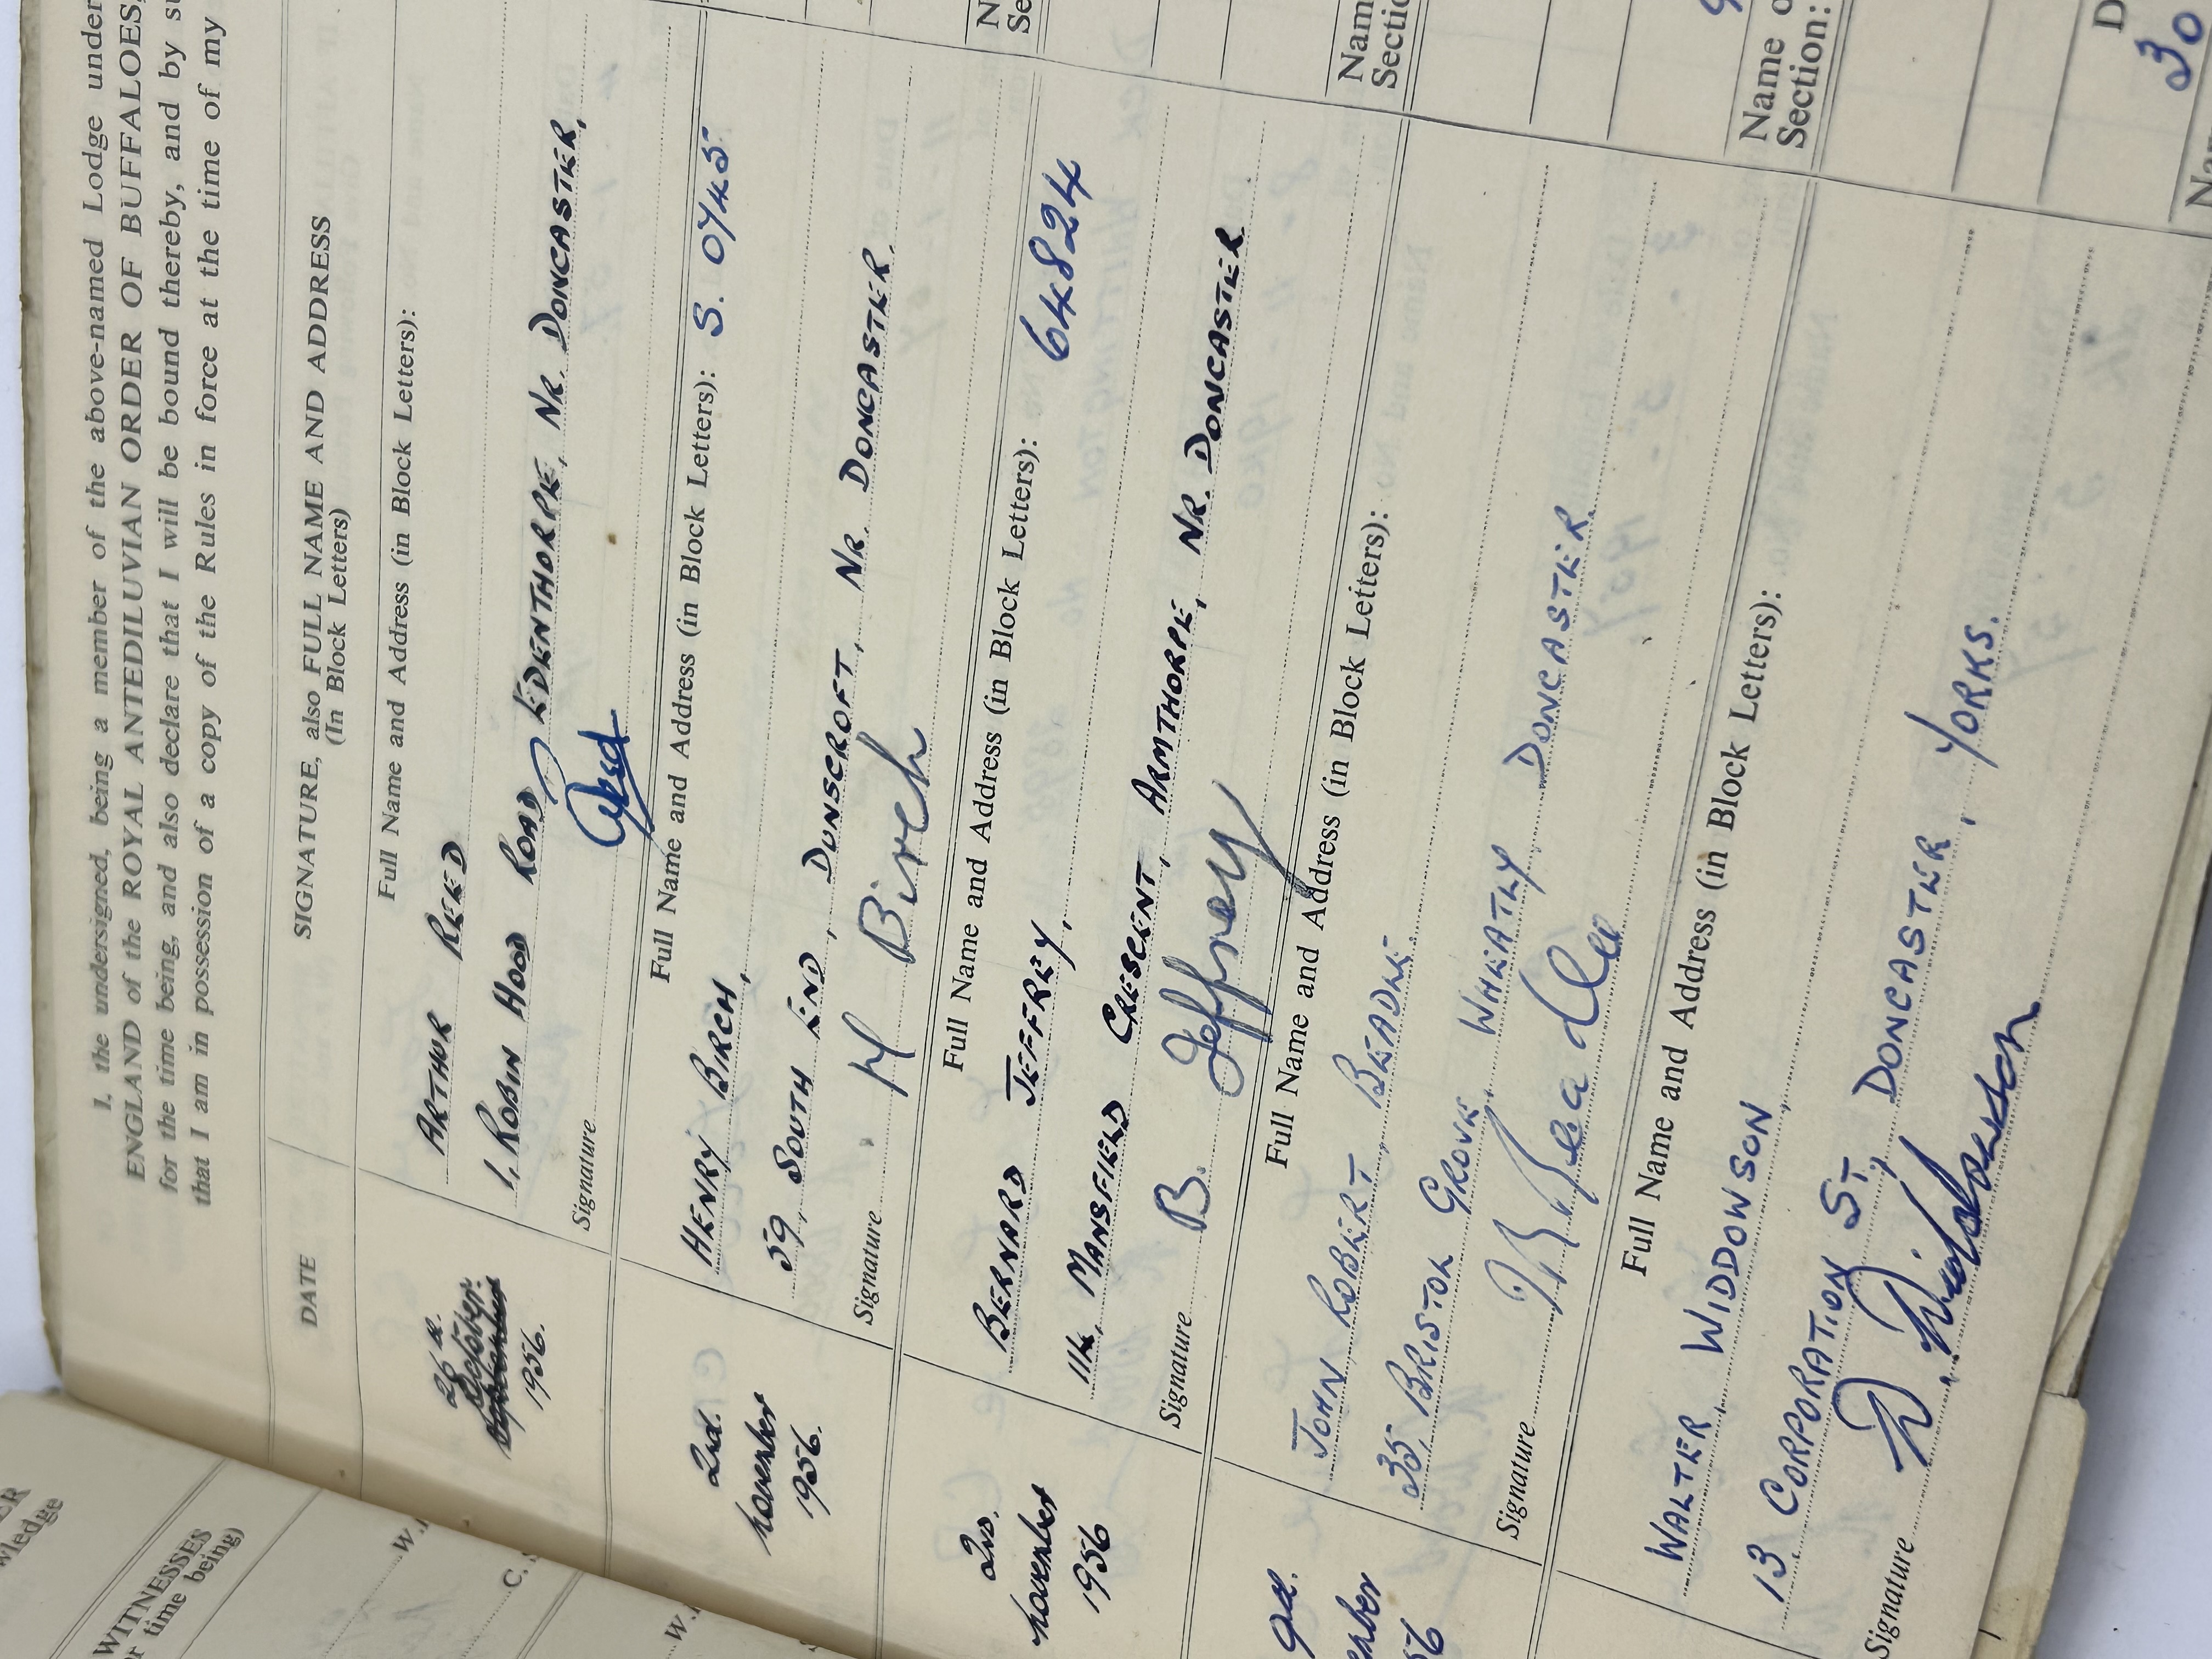 I, the undersigned, being a member of the above-named Lodge under
ENGLAND of the ROYAL ANTEDILUVIAN ORDER OF BUFFALOES,
for the time being, and also declare that I will be bound thereby, and by
that I am in possession of a copy of the Rules in force at the time of my
DATE
SIGNATURE, also FULL NAME AND ADDRESS
(In Block Letters)
Full Name and Address (in Block Letters):
26th.
October.
1956.
ARTHUR REED
1, ROBIN HOOD ROAD, EDENTHORPE, NR. DONCASTER,
Signature
Full Name and Address (in Block Letters): S. 0745
2nd.
November
1956.
HENRY BIRCH,
59, SOUTH END, DUNSCROFT, NR. DONCASTER.
Signature H Birch
Full Name and Address (in Block Letters): 64824
2nd.
November
1956
BERNARD JEFFREY,
114, MANSFIELD CRESCENT, ARMTHORPE, NR. DONCASTER.
Signature B. Jeffrey
Full Name and Address (in Block Letters):
9th.
ember
56
JOHN ROBERT BEADLE.
35, BRISTOL GROVE, WHEATLY, DONCASTER.
Signature J R Beadle
Full Name and Address (in Block Letters):
WALTER WIDDOWSON,
13 CORPORATION ST., DONCASTER, YORKS.
Signature W. Widdowson
Name of
Section:
30
WITNESSES
time being)
wledge
W.
C.
W.